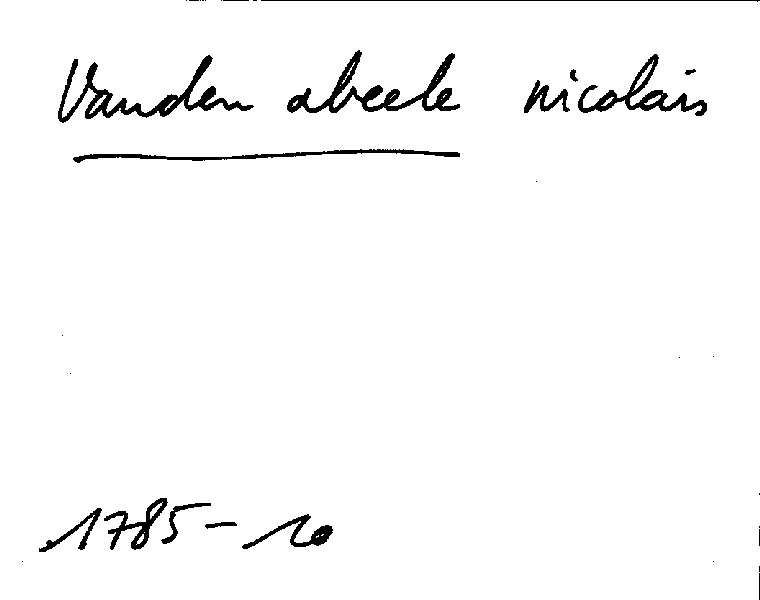 Vanden abeele nicolais
1785-10